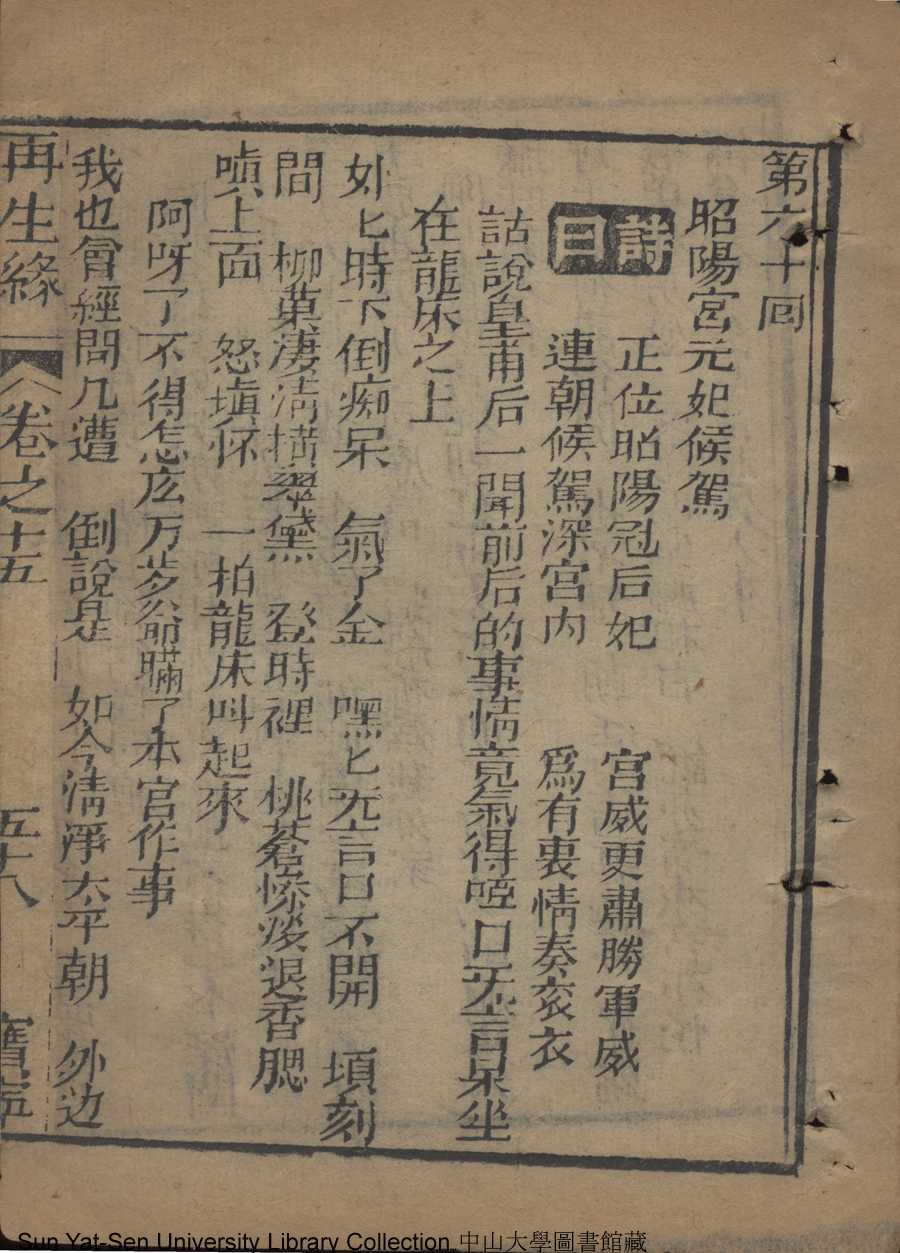 第六十回
昭陽宮元妃候駕
詩曰
正位昭陽冠后妃 宮威更肅勝軍威
連朝候駕深宮内 爲有衷情奏袞衣
話說皇甫后一聞前后的事情竟氣得啞口无言呆坐
在龍床之上
好匕時下倒痴呆 氣了金 嘿匕无言口不開 頃刻
間 柳葉淒淸描翠黛 登時裡 桃蒼慘淡退香腮
嗔上面 怒塡怀 一拍龍床叫起來
阿呀了不得怎庅万歲爺瞞了本宮作事
我也曾經問几遭 倒說是 如今清淨太平朝 外边
再生緣 卷之十五 五十八
Sun Yat-Sen University Library Collection 中山大學圖書館藏